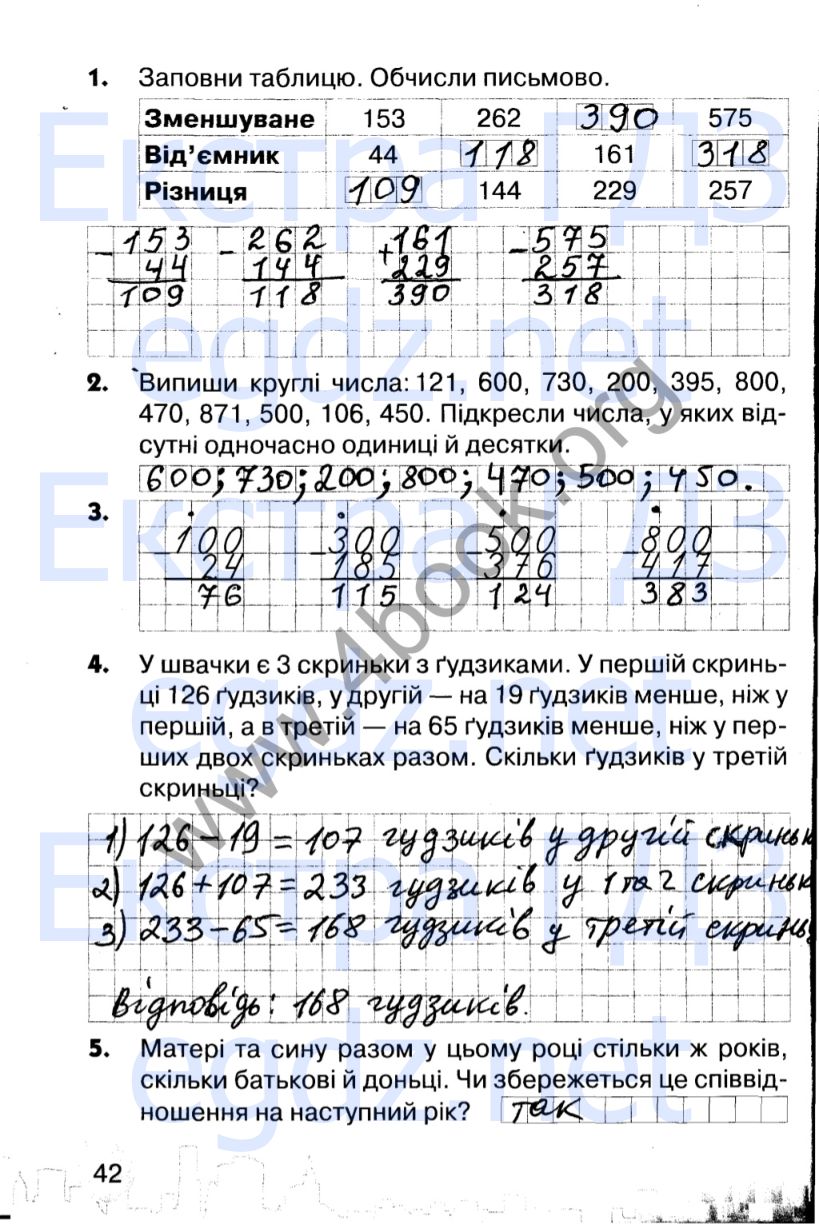 1. Заповни таблицю. Обчисли письмово.
Зменшуване 153 262 390 575
Від’ємник 44 118 161 318
Різниця 109 144 229 257
- 153 - 262 + 161 - 575
44 144 229 257
109 118 390 318
2. Випиши круглі числа: 121, 600, 730, 200, 395, 800,
470, 871, 500, 106, 450. Підкресли числа, у яких від-
сутні одночасно одиниці й десятки.
600; 730; 200; 800; 470; 500; 450.
3.
- 100 - 300 - 500 - 800
24 185 376 417
76 115 124 383
4. У швачки є 3 скриньки з ґудзиками. У першій скринь-
ці 126 ґудзиків, у другій — на 19 ґудзиків менше, ніж у
першій, а в третій — на 65 ґудзиків менше, ніж у пер-
ших двох скриньках разом. Скільки ґудзиків у третій
скриньці?
1) 126 – 19 = 107 гудзиків у другій скриньк
2) 126 + 107 = 233 гудзиків у 1 та 2 скриньк
3) 233 – 65 = 168 гудзиків у третій скринь
Відповідь: 168 гудзиків.
5. Матері та сину разом у цьому році стільки ж років,
скільки батькові й доньці. Чи збережеться це співвід-
ношення на наступний рік? так
42
Екстра ГДЗ
egdz.net
Екстра ГДЗ
egdz.net
Екстра ГДЗ
egdz.net
www.4book.org